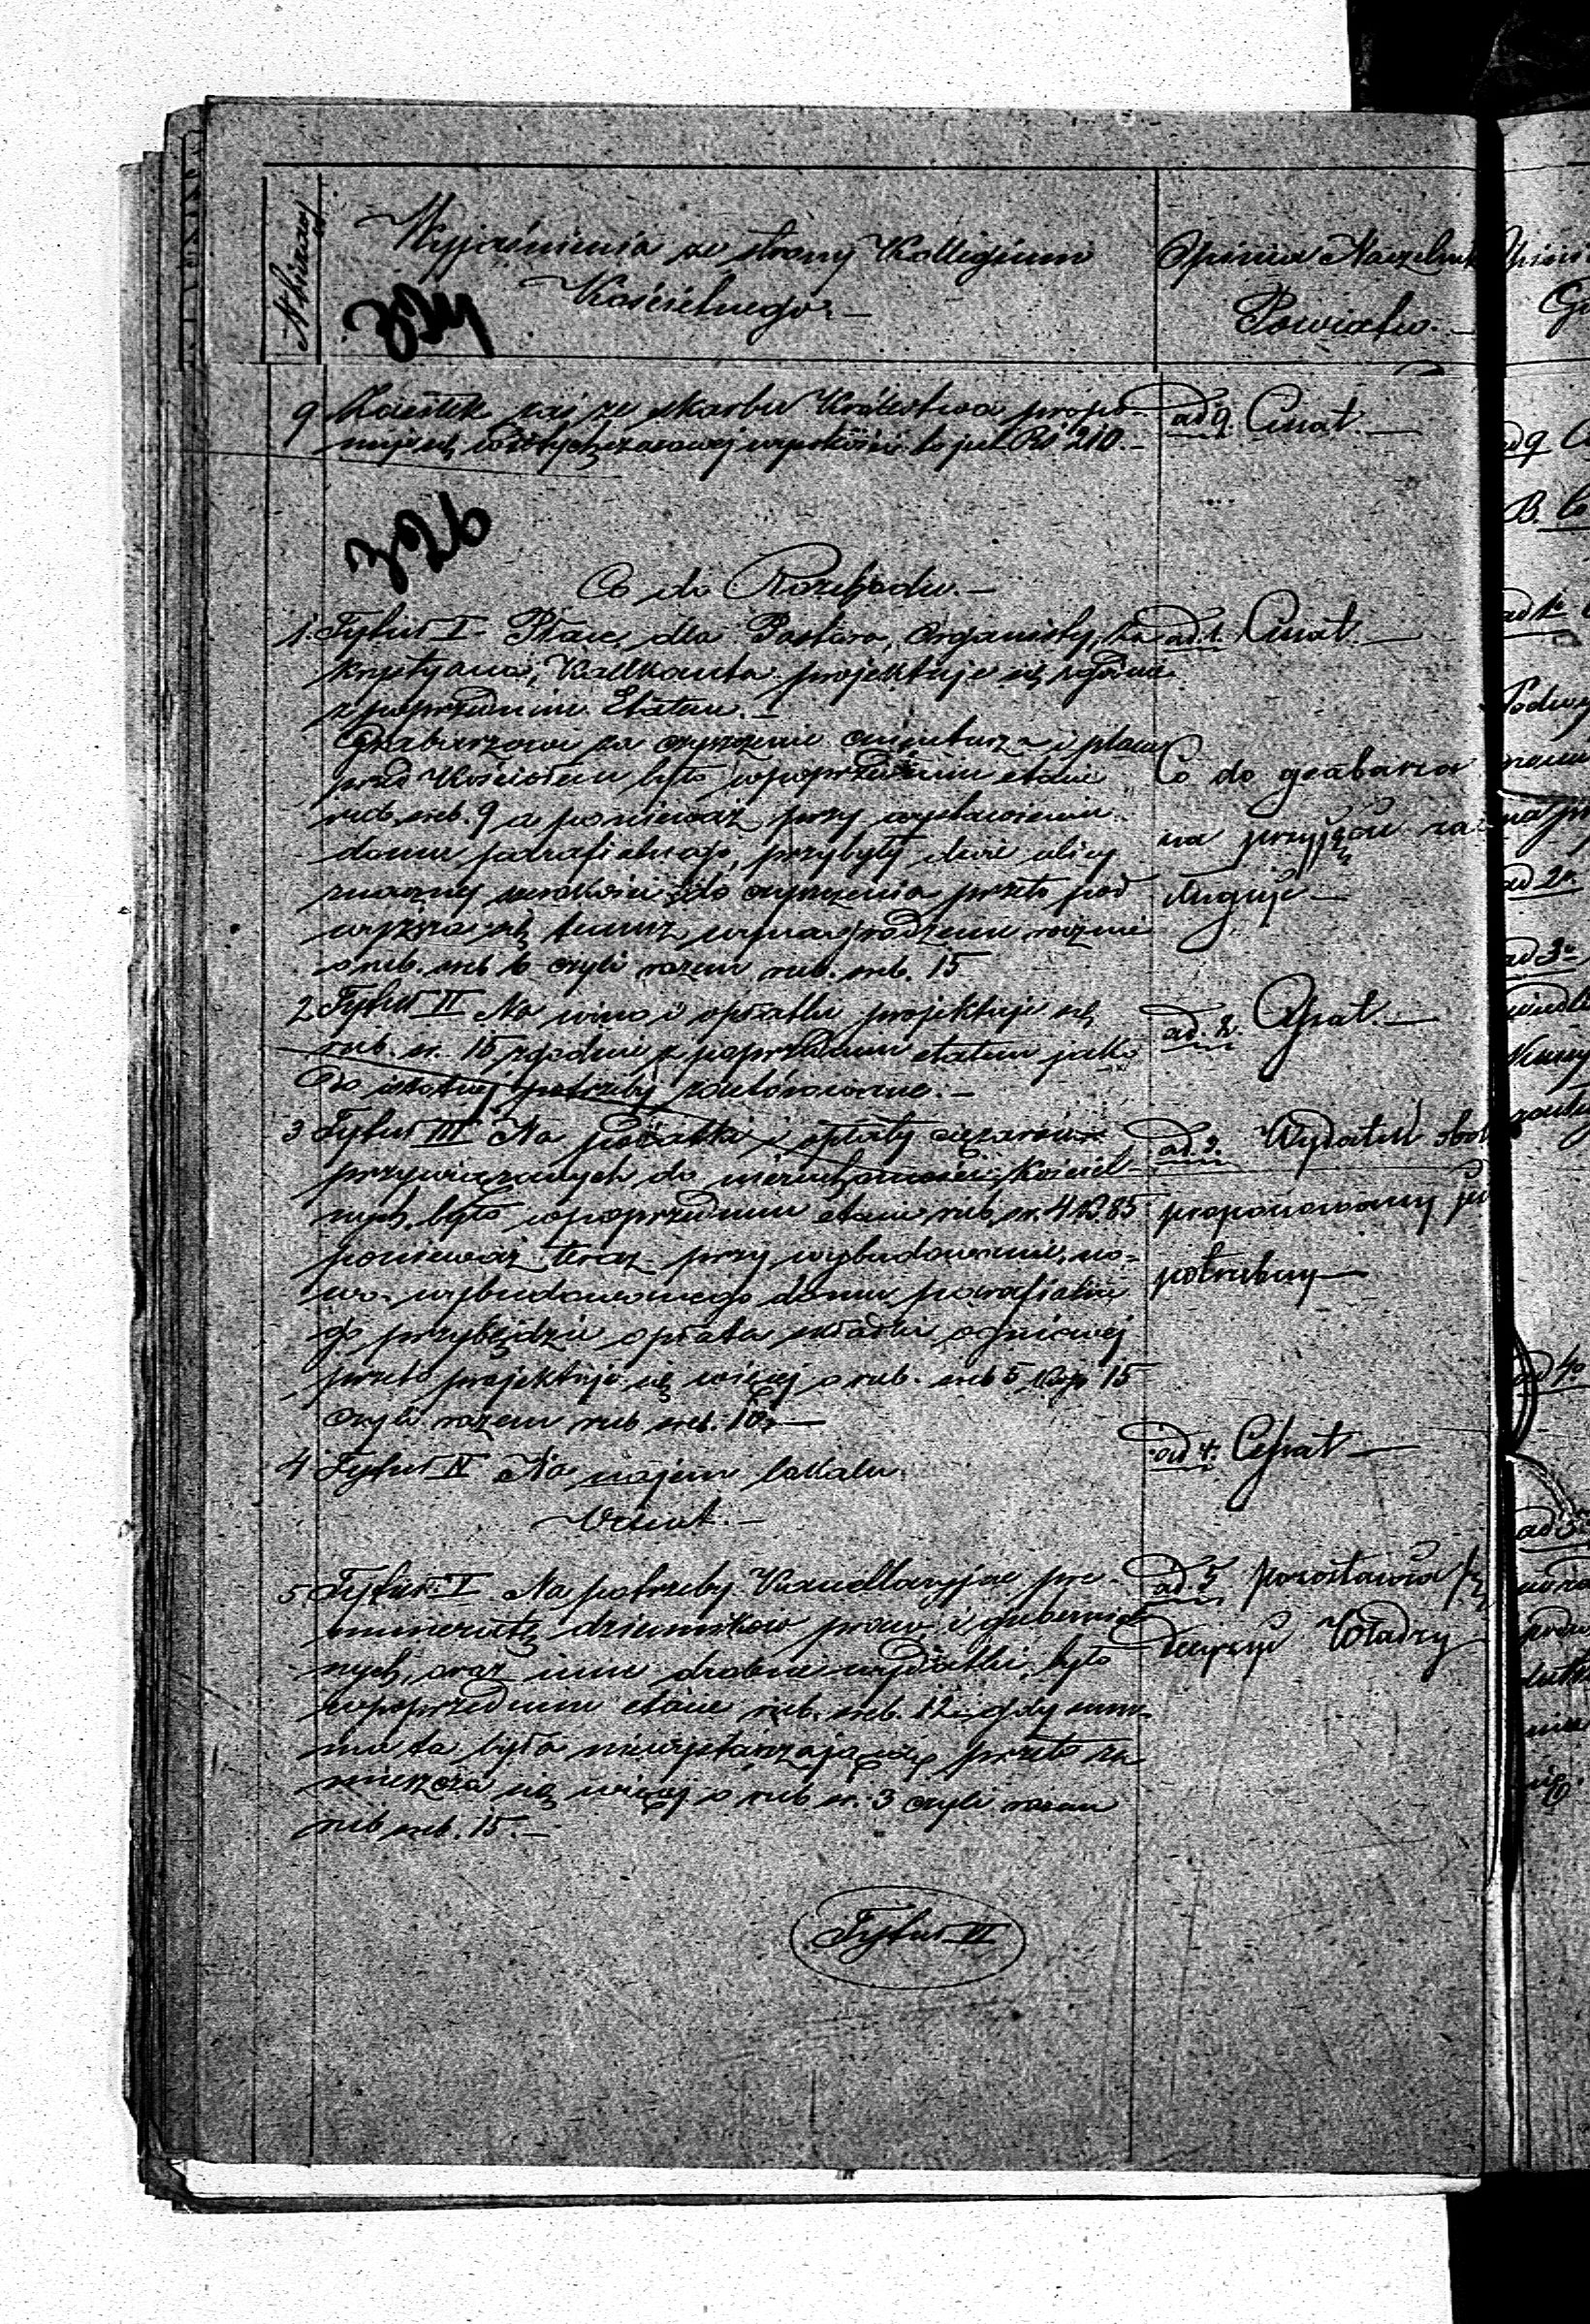 Wyjaśnienia ze strony Kollegium
Kościelnego.—
Opinia Naczelnik
Powiatu.—
324
9 Zasiłek zaś ze skarbu Królestwa propo-
nuje się w dotychczasowej wysokości to jest Rs 210.—
ad 9. Cessat.—
326
Co do Rozchodu.—
1. Tytuł I Płace, dla Pastora, Organisty, Za
krystyana, Kalikanta projektuje się zgodnie
z poprzednim Etatem.—
Grabarzowi za czyszczenie cmentarza i placu
przed Kościołem było w poprzednim etacie
rub. sreb. 9 a ponieważ przy wystawieniu
domu parafialnego, przybyły dwie ulicy
znacznej szerokości do czyszczenia przeto pod
wyższa się temuż wynagrodzenie rocznie
o rub. sreb 6 czyli razem rub. sreb. 15
ad. 1. Cessat.—
Co do grabarza
na przyjęcie za-
sługuje—
2 Tytuł II Na wino i opłatki projektuje się
rub. sr. 15 zgodnie z poprzednim etatem jako
do istotnej potrzeby zastósowane.—
ad. 2. Cessat.—
3 Tytuł III Na podatki i opłaty ciężarów
przywiązanych do nieruchomości Kościel-
nych, było w poprzednim etacie rub. sr. 4 k. 85
ponieważ teraz przy wybudowaniu, no-
wo-wybudowanego domu parafialne
go przybędzie opłata składki ogniowej
przeto projektuje się więcej o rub. sreb 5 kop 15
czyli razem rub sreb. 10.—
ad. 3. Wydatek
proponowany
potrzebny—
4 Tytuł IV Na najem lokalu
Vacat.—
ad 4. Cessat—
5 Tytuł V Na potrzeby Kancellaryjne pre-
numeratę dzienników praw i gubernial
nych, oraz inne drobne wydatki, było
w poprzednim etacie rub. sreb. 12.— gdy sum-
ma ta była niewystarczającą, przeto za
mieszcza się więcej o rub sr. 3 czyli razem
rub sreb. 15.—
ad. 5 pozostawia
decyzji Władzy
Tytuł VI